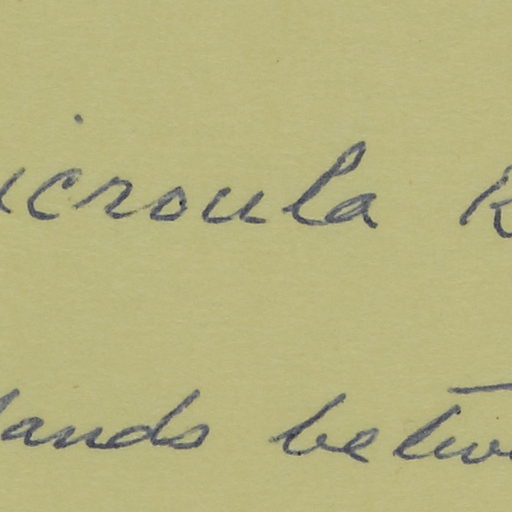 icroula R
lands betw